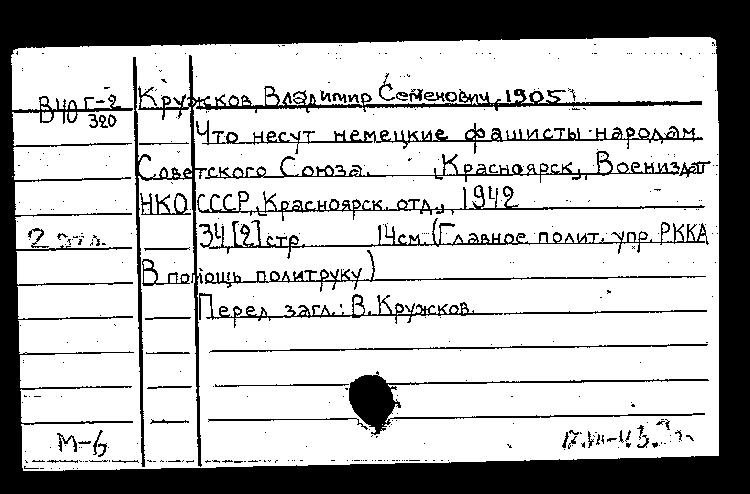 В40 Г-2 Кружков, Владимир Семенович, 1905
320
Что несут немецкие фашисты народам
Советского Союза. [Красноярск], Воениздат
НКО СССР, [Красноярск. отд.], 1942
2 экз. 34,[2] стр. 14см. (Главное полит. упр. РККА
В помощь политруку)
Перед загл.: В. Кружков.
М-б